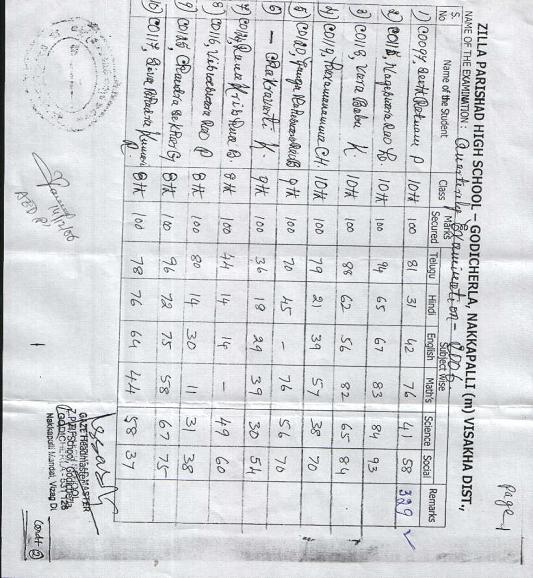 Page-1
ZILLA PARISHAD HIGH SCHOOL- GODICHERLA, NAKKAPALLI (m) VISAKHA DIST.,
NAME OF THE EXAMINATION: Quarterly Examination - 2006
S. No Name of the Student Class Marks Secured Subject Wise Remarks
Telugu Hindi English Math's Science Social
1) C0097, P 10th 100 81 31 42 76 41 58 329
2) C0115, Nageswara Rao 10th 100 94 65 67 83 84 93
3) C0118, Babu K. 10th 100 88 62 56 82 65 84
4) C0119, CH. 10th 100 79 21 39 57 38 70
5) C0120, 9th 100 70 45 - 76 56 70
6) - Chakravarti K. 9th 100 36 19 29 39 30 54
7) 9th 100 44 14 14 - 49 60
8) C0116, Rao P 8th 100 80 14 30 11 31 38
9) C0125 Chandra Sekhar G 8th 100 96 72 75 58 67 75
10) C0117, Siva Kumari R. 8th 100 78 76 64 44 58 37
14/12/06
GODICHERLA - 531 126
Nakkapalli Mandal, Vizag D
Contd (2)